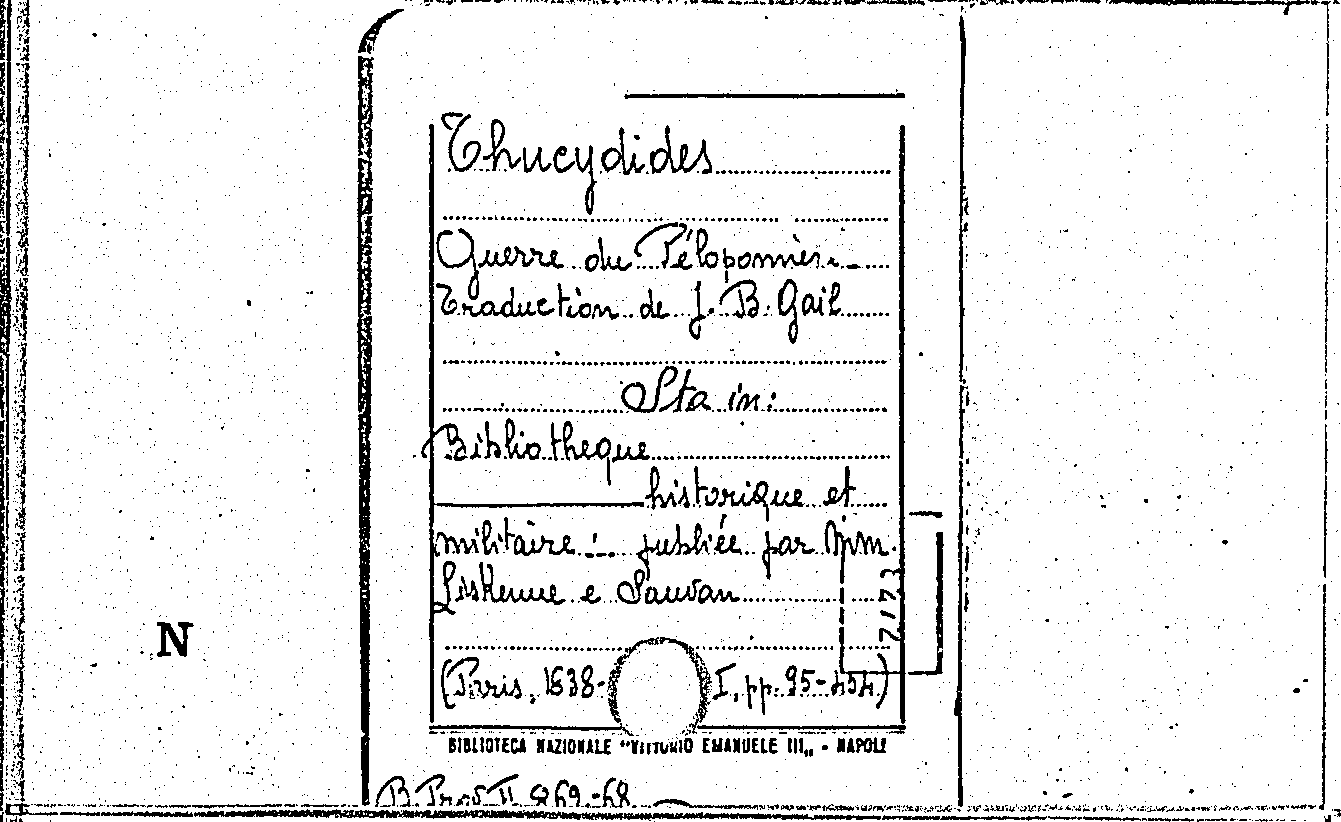 Thucydides
Guerre du Péloponnès.-
Traduction de J. B. Gail
Sta in:
Bibliotheque
historique et
militaire ... publiée par Mm.
Liskenne e Sauvan
2173
(Paris, 1838- I, pp. 95-454)
BIBLIOTECA NAZIONALE "VITTORIO EMANUELE III„ - NAPOLI
N
B. Prov. II 869.-68